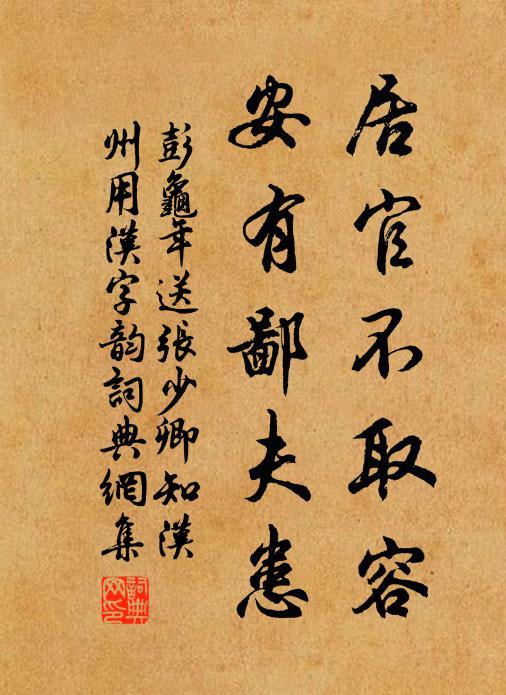 居官不取容
安有鄙夫患
彭龜年送張少卿知漢
州用漢字韵詞典網集
詞典網印